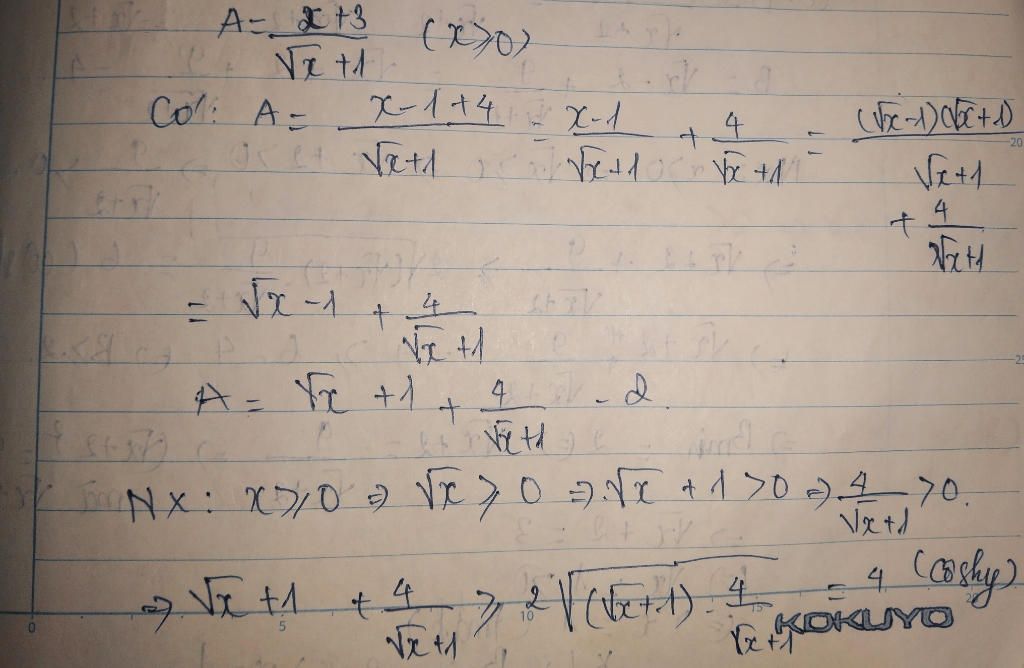 A = \frac{x+3}{\sqrt{x}+1} (x ⩾ 0)
Có: A = \frac{x-1+4}{\sqrt{x}+1} = \frac{x-1}{\sqrt{x}+1} + \frac{4}{\sqrt{x}+1} = \frac{(\sqrt{x}-1)(\sqrt{x}+1)}{\sqrt{x}+1}
+ \frac{4}{\sqrt{x}+1}
= \sqrt{x} - 1 + \frac{4}{\sqrt{x}+1}
A = \sqrt{x} + 1 + \frac{4}{\sqrt{x}+1} - 2.
NX: x ⩾ 0 ⇒ \sqrt{x} ⩾ 0 ⇒ \sqrt{x} + 1 > 0 ⇒ \frac{4}{\sqrt{x}+1} > 0.
⇒ \sqrt{x} + 1 + \frac{4}{\sqrt{x}+1} ⩾ 2\sqrt{(\sqrt{x}+1) \cdot \frac{4}{\sqrt{x}+1}} = 4 (Coshy)
KOKUYO
0 5 10 15 20
20
25